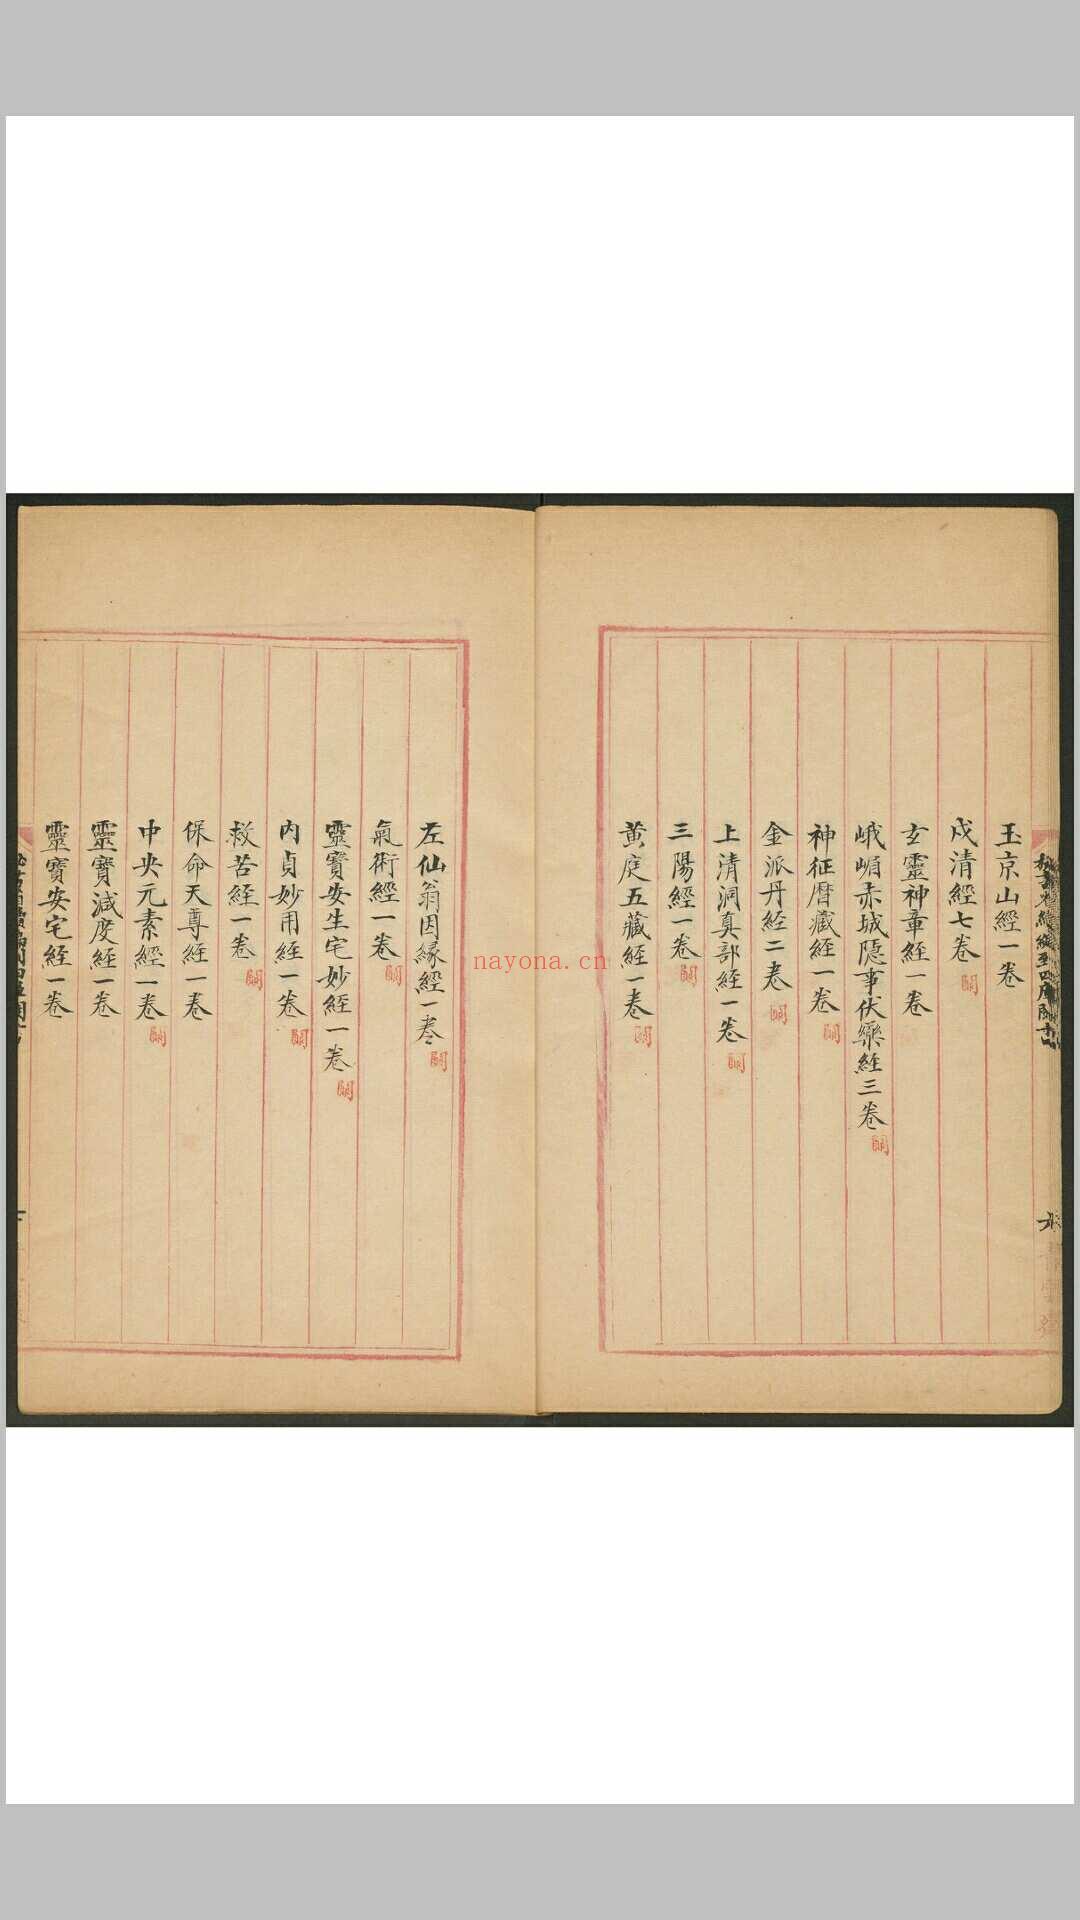 玉京山經一卷
戍清經七卷 闕
玄靈神章經一卷
峨嵋赤城隠事伏藥經三卷 闕
神征曆藏經一卷 闕
金派丹經二卷 闕
上清洞真部經一卷 闕
三陽經一卷 闕
黄庭五藏經一卷 闕
左仙翁因緣經一卷 闕
氣術經一卷 闕
靈寳安生宅妙經一卷 闕
内貞妙用經一卷 闕
救苦經一卷 闕
保命天尊經一卷
中央元素經一卷 闕
靈寳減度經一卷
靈寳安宅經一卷
nayona.cn